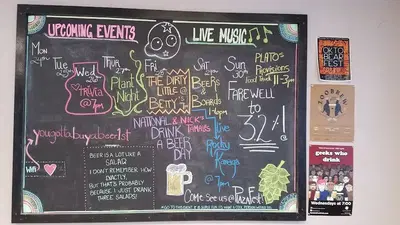 UPCOMING EVENTS
LIVE MUSIC
Mon
Tue
Wed
Thur
27th
Fri
Sat
Sun
30th
TRIVIA
@ 7pm
Plant
Night
THE DIRTY
LITTLE
BETTY'S
BEERS
&
BOARDS
PLATO'S
Provisions
FOOD TRUCK 11-3pm
FAREWELL
to
32%!
NATIONAL
DRINK
A BEER
DAY
& NICK
Live
Rocky
yougottabuyabeer1st
Wifi
BEER IS A LOT LIKE A
SALAD!
I DON'T REMEMBER HOW
EXACTLY.
BUT THAT'S PROBABLY
BECAUSE I JUST DRANK
THREE SALADS!
Come see us @
OKTO
BEAR
FEST
ZOOBREW
geeks who
drink
Wednesdays at 7:00